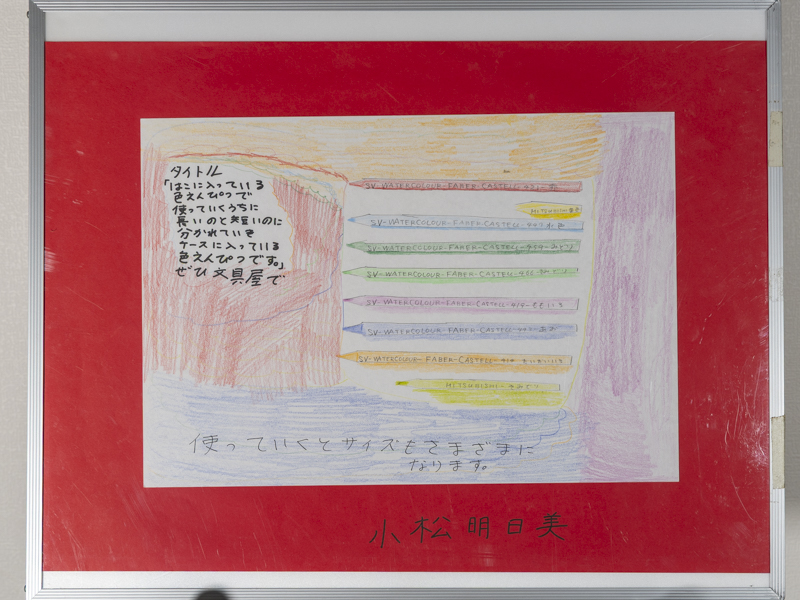 タイトル
「はこに入っている
色えんぴつで
使っていくうちに
長いのと短いのに
分かれていき
ケースに入っている
色えんぴつです。」
ぜひ文具屋で
SV-WATERCOLOUR FABER-CASTELL
MITSUBISHI-黄色
SV-WATERCOLOUR FABER-CASTELL-447 水色
SV-WATERCOLOUR FABER-CASTELL
SV-WATERCOLOUR FABER-CASTELL
SV-WATERCOLOUR FABER CASTELL
SV-WATERCOLOUR FABER-CASTELL
SV-WATERCOLOUR-FABER-CASTELL
MITSUBISHI-きみどり
使っていくとサイズもさまざまに
なります。
小松明日美